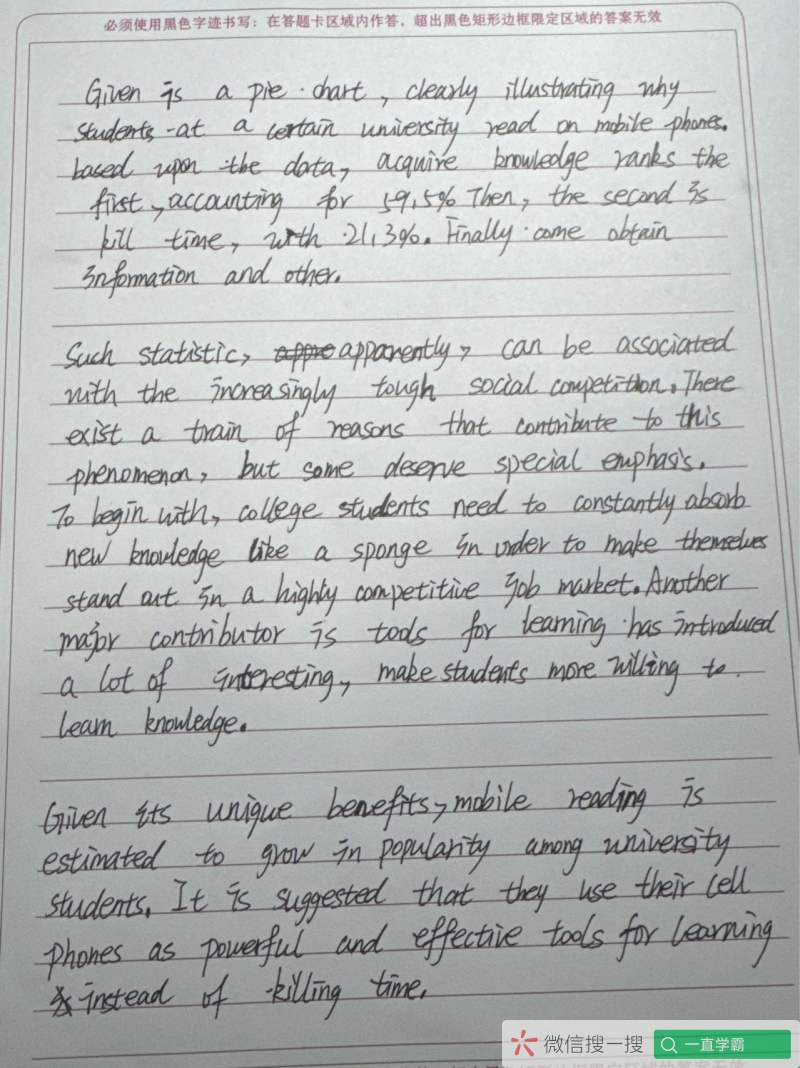 必须使用黑色字迹书写：在答题卡区域内作答，超出黑色矩形边框限定区域的答案无效
Given is a pie chart, clearly illustrating why
students at a certain university read on mobile phones.
based upon the data, acquire knowledge ranks the
first, accounting for 59,5% Then, the second is
kill time, with 21,3%. Finally come obtain
information and other.
Such statistic, apparently, can be associated
with the increasingly tough social competition. There
exist a train of reasons that contribute to this
phenomenon, but some deserve special emphasis.
To begin with, college students need to constantly absorb
new knowledge like a sponge in order to make themselves
stand out in a highly competitive job market. Another
major contributor is tools for learning has introduced
a lot of interesting, make students more willing to
learn knowledge.
Given its unique benefits, mobile reading is
estimated to grow in popularity among university
students. It is suggested that they use their cell
phones as powerful and effective tools for learning
instead of killing time.
微信搜一搜 一直学霸